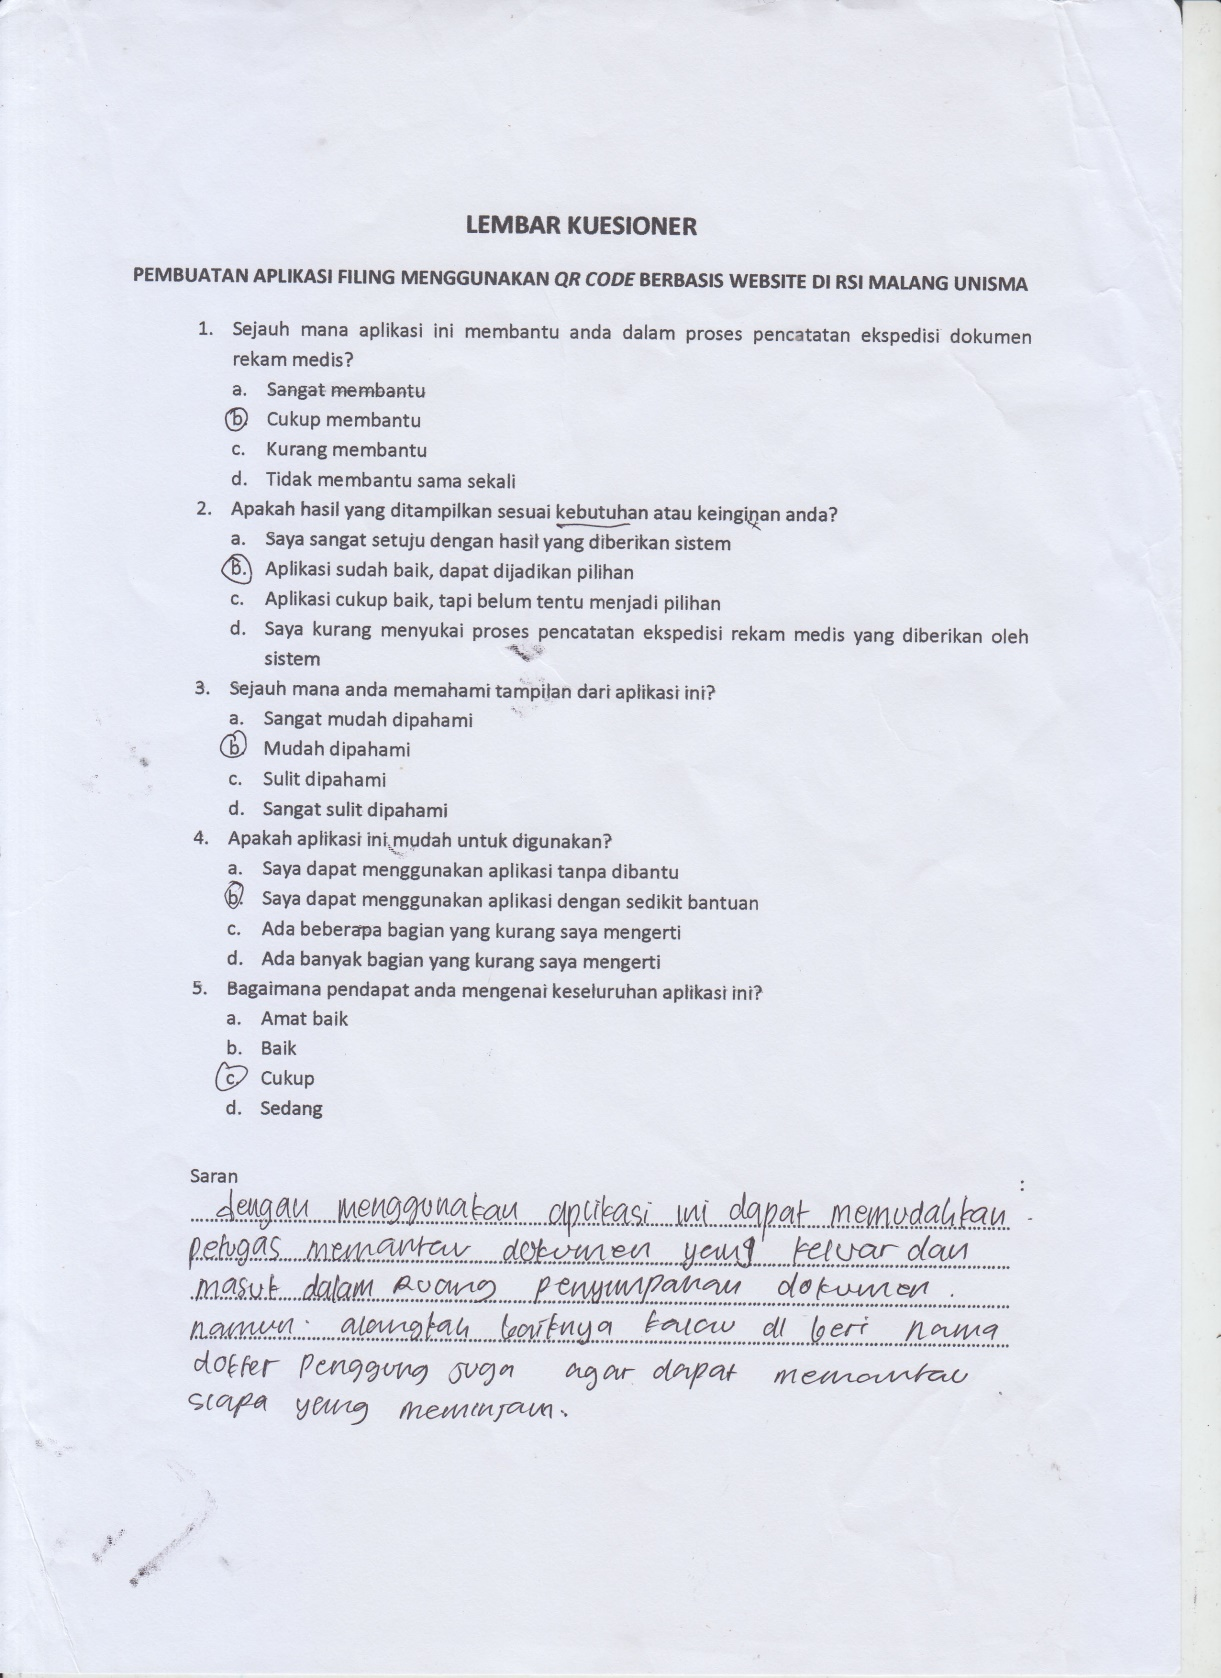 LEMBAR KUESIONER
PEMBUATAN APLIKASI FILING MENGGUNAKAN QR CODE BERBASIS WEBSITE DI RSI MALANG UNISMA
1. Sejauh mana aplikasi ini membantu anda dalam proses pencatatan ekspedisi dokumen
rekam medis?
a. Sangat membantu
b. Cukup membantu
c. Kurang membantu
d. Tidak membantu sama sekali
2. Apakah hasil yang ditampilkan sesuai kebutuhan atau keinginan anda?
a. Saya sangat setuju dengan hasil yang diberikan sistem
B. Aplikasi sudah baik, dapat dijadikan pilihan
c. Aplikasi cukup baik, tapi belum tentu menjadi pilihan
d. Saya kurang menyukai proses pencatatan ekspedisi rekam medis yang diberikan oleh
sistem
3. Sejauh mana anda memahami tampilan dari aplikasi ini?
a. Sangat mudah dipahami
b. Mudah dipahami
c. Sulit dipahami
d. Sangat sulit dipahami
4. Apakah aplikasi ini mudah untuk digunakan?
a. Saya dapat menggunakan aplikasi tanpa dibantu
b. Saya dapat menggunakan aplikasi dengan sedikit bantuan
c. Ada beberapa bagian yang kurang saya mengerti
d. Ada banyak bagian yang kurang saya mengerti
5. Bagaimana pendapat anda mengenai keseluruhan aplikasi ini?
a. Amat baik
b. Baik
c. Cukup
d. Sedang
Saran :
dengan menggunakan aplikasi ini dapat memudahkan
petugas memantau dokumen yang keluar dan
masuk dalam Ruang penyimpanan dokumen.
namun. alangkah baiknya kalau di beri nama
dokter Penggung juga agar dapat memantau
siapa yang meminjam.